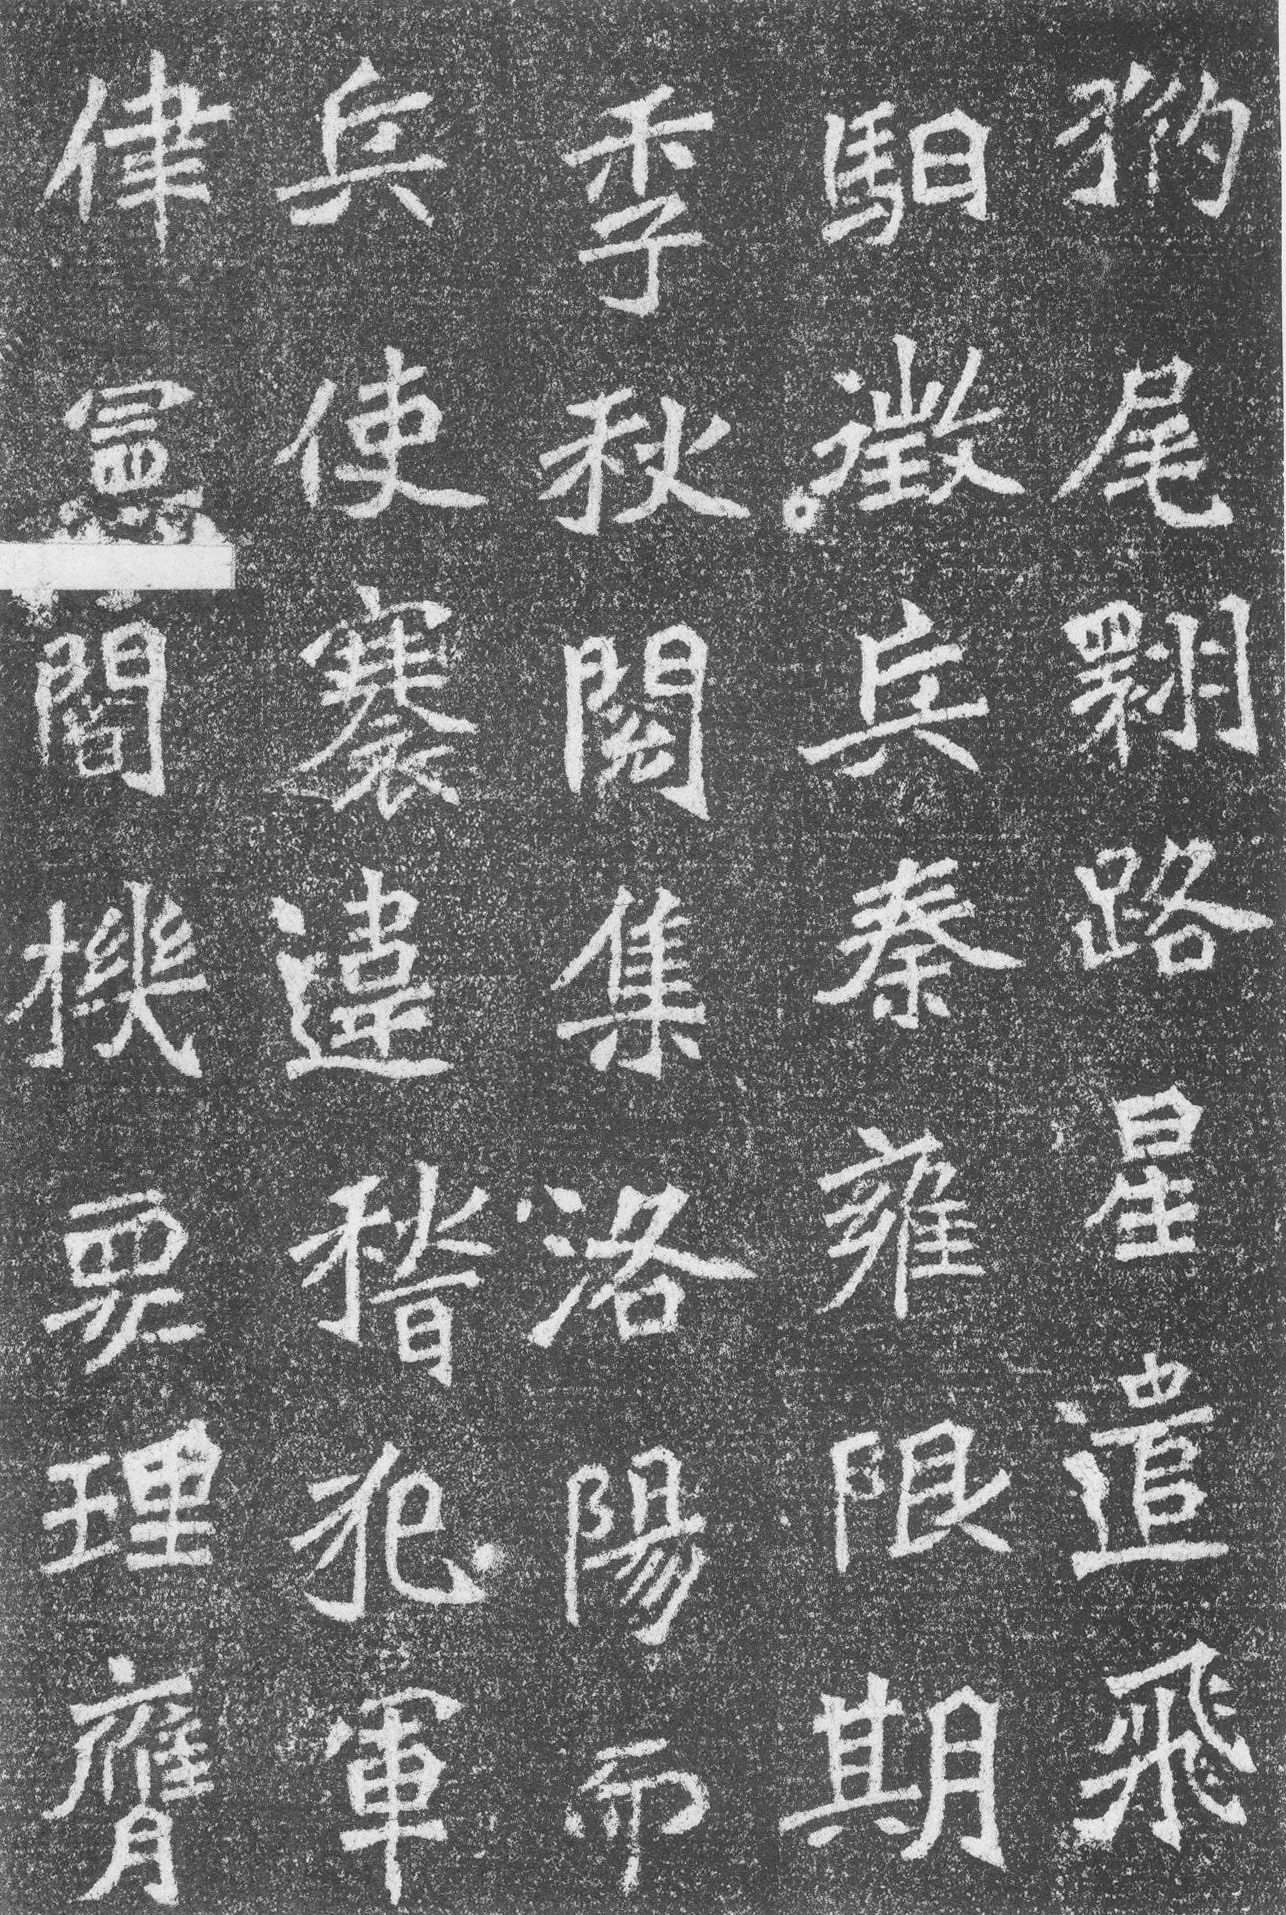 豹尾翾路星遣飛
馹徵兵秦雍限期
季秋閱集洛陽而
兵使褰違稽犯軍
律憲機要理膺